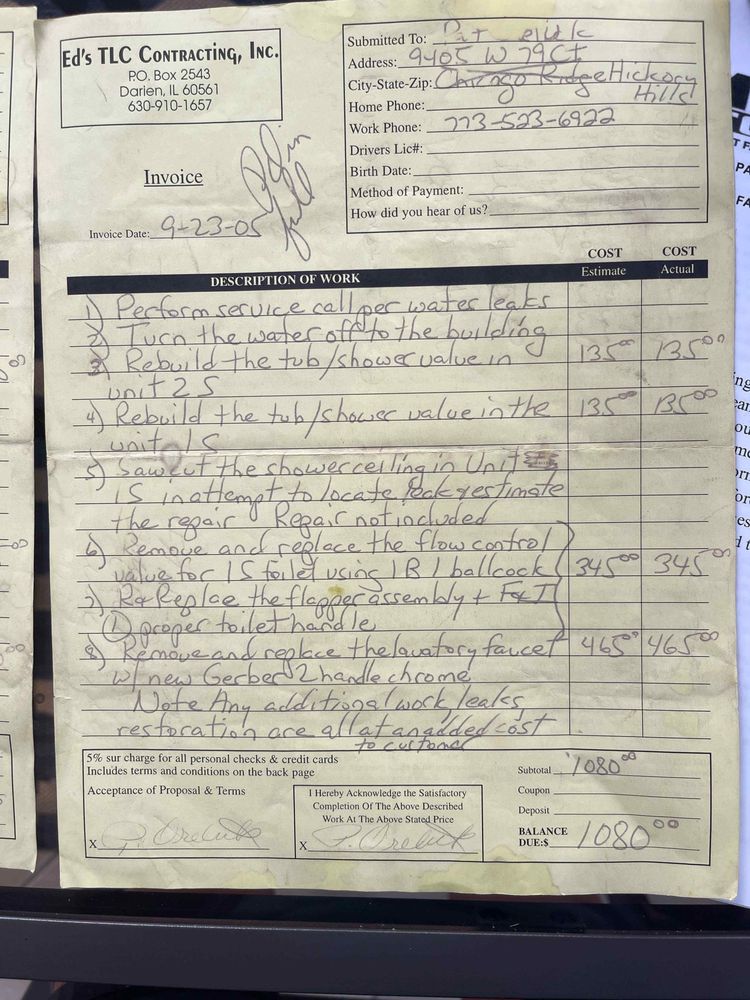 Ed's TLC Contracting, Inc.
P.O. Box 2543
Darien, IL 60561
630-910-1657
Submitted To: Pat
Address: 9405 W 79 Ct
City-State-Zip: Chicago Ridge Hickory
Hills
Home Phone:
Work Phone: 773-523-6922
Drivers Lic#:
Birth Date:
Method of Payment:
How did you hear of us?
Invoice
Invoice Date: 9-23-05
Paid in
full
COST COST
DESCRIPTION OF WORK Estimate Actual
1) Perform service call per water leaks
2) Turn the water off to the building
3) Rebuild the tub/shower valve in 135 00 135 00
unit 2S
4) Rebuild the tub/shower valve in the 135 00 135 00
unit 1S
5) Sawcut the shower ceiling in Unit
1S in attempt to locate leak & estimate
the repair Repair not included
6) Remove and replace the flow control
valve for 1S toilet using 1 B1 ballcock 345 00 345 00
7) R& Replae the flapper assembly + F&I
① proper toilet handle
8) Remove and replace the lavatory faucet 465 00 465 00
w/ new Gerber 2 handle chrome
Note Any additional work, leaks,
restoration are all at an added cost
to customer
5% sur charge for all personal checks & credit cards
Includes terms and conditions on the back page
Acceptance of Proposal & Terms
X
I Hereby Acknowledge the Satisfactory
Completion Of The Above Described
Work At The Above Stated Price
X
Subtotal 1080 00
Coupon
Deposit
BALANCE
DUE:$ 1080 00